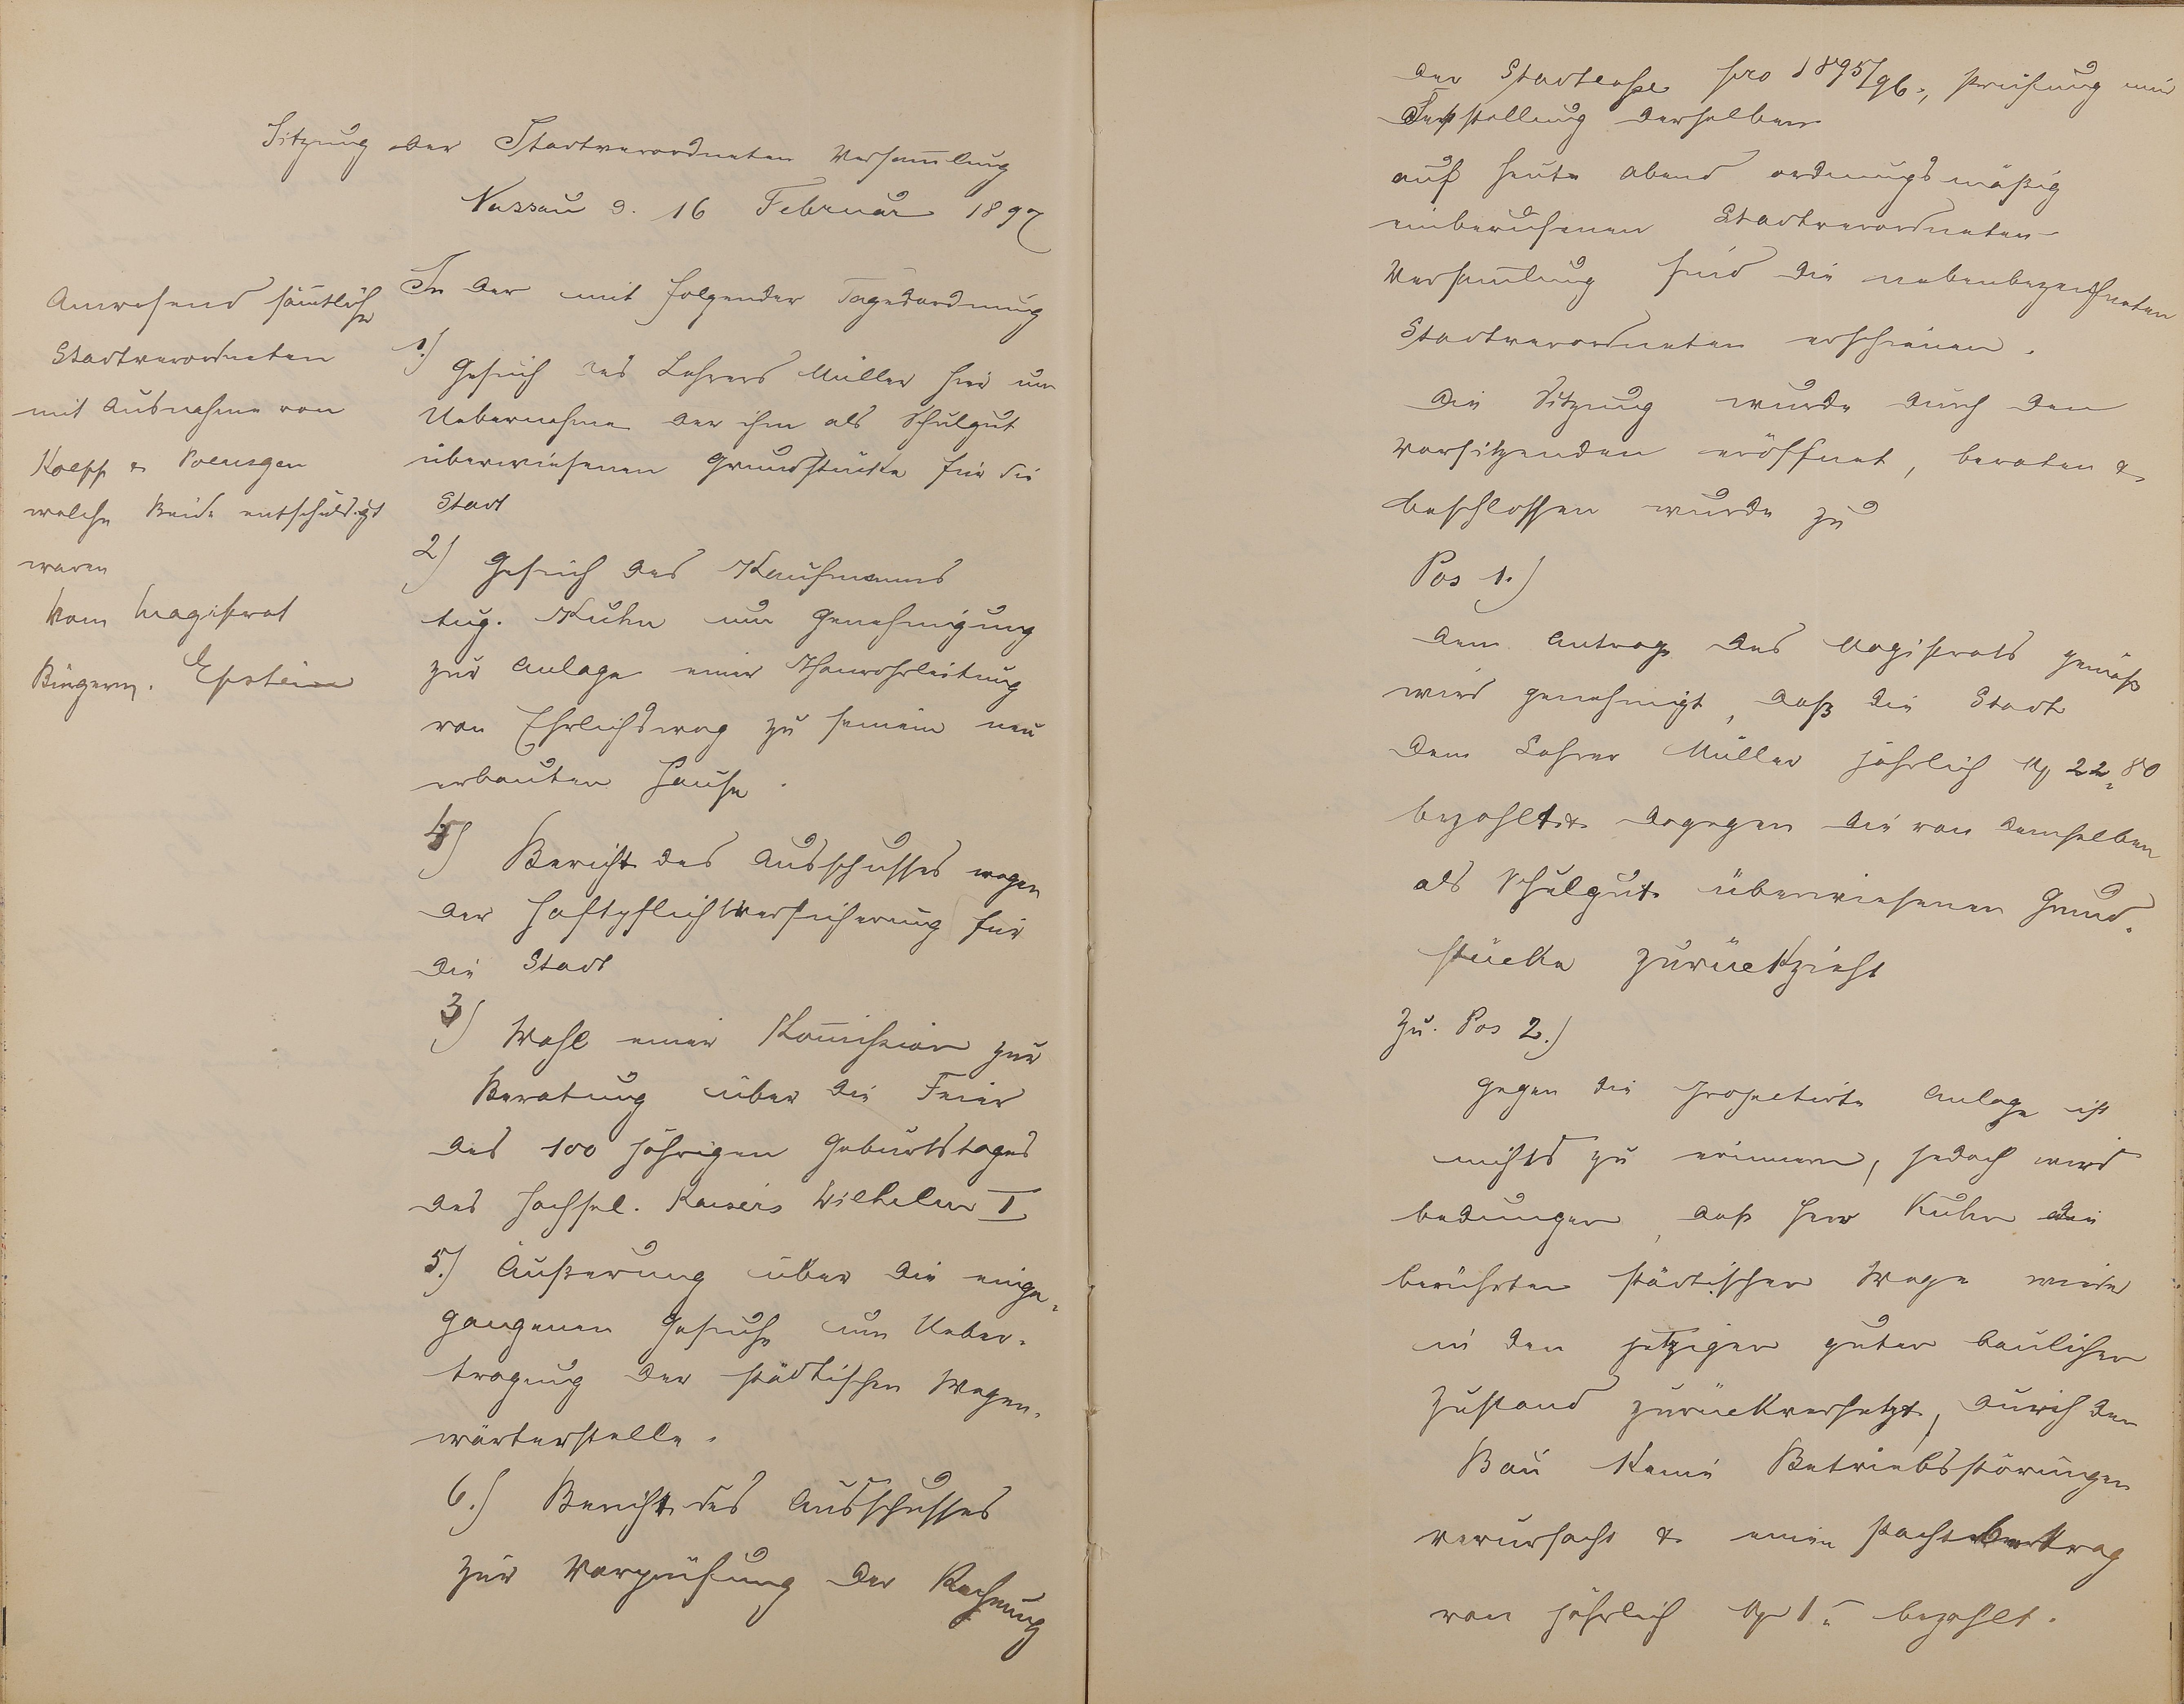 Sitzung der Stadtverordneten Versam̅lung
Nassau d. 16 Februar 1897
Anwesend sämtliche
Stadtverordneten
mit Ausnahme von
Koepp &
welche Beide entschuldigt
waren
Vom Magistrat
Bürgerm. Epstein
In der mit folgender Tagesordnung
1.) Gesuch des Lehrers Müller hier um
Uebernahme der ihm als Schulgut
überwiesenen Grundstücke für die
Stadt
2) Gesuch des Kaufmanns
Aug. Kuhn um Genehmigung
zur Anlage einer Thonrohrleitung
von Ehrlichsweg zu seinem neu
erbauten Hause.
4) Bericht des Ausschusses wegen
der Haftpflichtversicherung für
die Stadt
3) Wahl einer Kom̅ission zur
Beratung über die Feier
des 100 jährigen Geburtstages
des hochsel. Kaisers Wilhelm I
5.) Äußerung über die einge-
gangenen Gesuche um Ueber-
tragung der städtischen Wegen-
wärterstelle.
6.) Bericht des Ausschusses
zur Vorprüfung der Rechnung
der Stadtcasse pro 1895/96., Prüfung und
Feststellung derselben
auf heute abend ordnungsmäßig
einberufenen Stadtverordneten-
Versam̅lung sind die nebenbezeichneten
Stadtverordneten erschienen.
Die Sitzung wurde durch den
Vorsitzenden eröffnet, beraten &
beschlossen wurde zu
Pos 1.)
Dem Antrage des Magistrats gemäß
wird genehmigt, daß die Stadt
dem Lehrer Müller jährlich M 22,80
bezahlt & dagegen die von demselben
als Schulgut überwiesenen Grund-
stücke zurückzieht
Zu. Pos 2.)
Gegen die projectirte Anlage ist
nichts zu erinnern, jedoch wird
bedungen, daß Herr Kuhn die
berührten städtischen Wege wieder
in den jetzigen guten baulichen
Zustand zurückversetzt, durch den
Bau keine Betriebsstörungen
verursacht & einen Pachtbetrag
von jährlich M 1.- bezahlt.